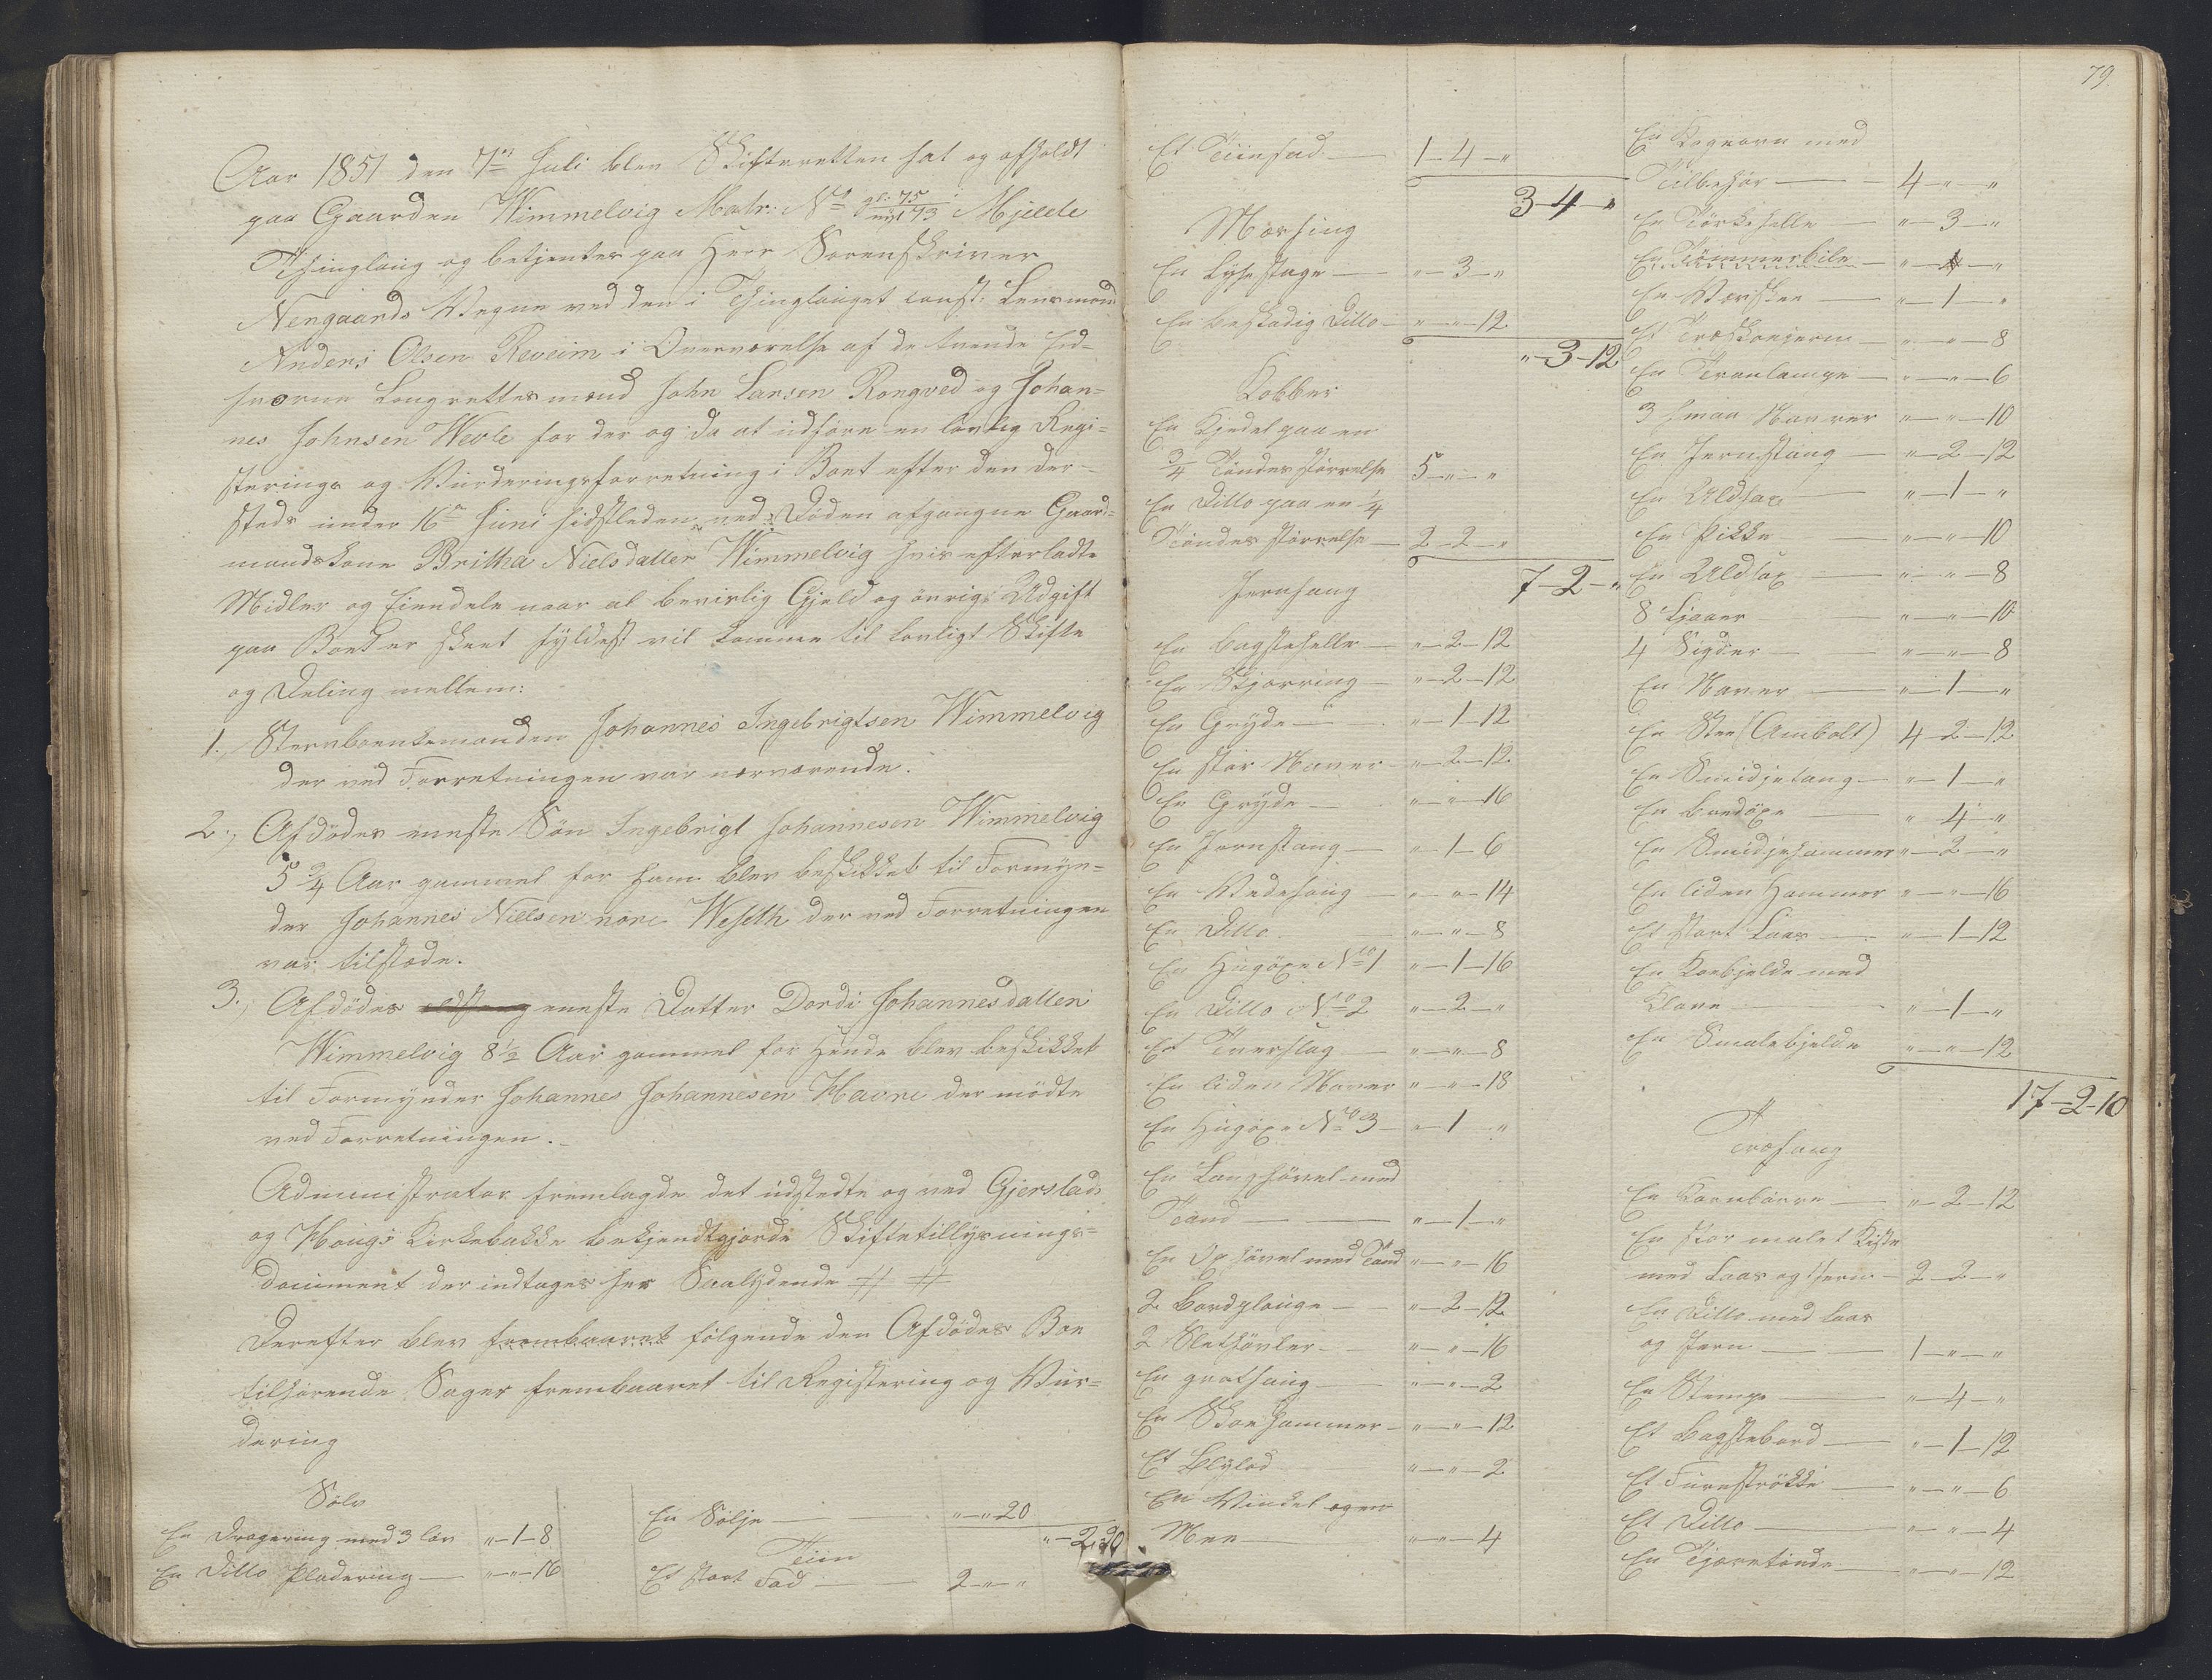 Aar 1851 den 7de Juli blev Skifteretten sat og afholdt
paa Gaarden Wimmelvig Matr: No gl: 75 nyt 173 i Mjelde
Thinglaug og betjentes paa Herr Sorenskriver
Nengaards Vegne ved den i Thinglauget const: Lensmand
Anders Olsen Reveim i Overværelse af de tvende Eed-
svorne Laugrettesmænd John Larsen Rongved og Johan-
nes Johnsen Wevle for der og da at udføre en lovlig Regi-
sterings og Vurderingsforretning i Boet efter den der-
steds under 16de Juni sidstleden ved Døden afgangne Gaard-
mandskone Britha Nielsdatter Wimmelvig hvis efterladte
Midler og Eiendele naar al bevislig Gjeld og øvrige Udgift
paa Boet er skeet fyldest vil komme til lovligt Skifte
og Deling mellem:
1., Stervboenkemanden Johannes Ingebrigtsen Wimmelvig
der ved Forretningen var nærværende.
2., Afdødes eneste Søn Ingebrigt Johannesen Wimmelvig
5 3/4 Aar gammel for ham blev beskikket til Formyn-
der Johannes Nielsen nore Weseth der ved Forretningen
var tilstæde.
3., Afdødes eneste Datter Dordi Johannesdatter
Wimmelvig 8 1/2 Aar gammel for hende blev beskikket
til Formynder Johannes Johannesen Havre der mødte
ved Forretningen.
Administrator fremlagde det udstedte og ved Gjerstad
og Hougs Kirkebakke bekjendtgjorde Skiftetillysnings-
document der indtages her Saalydende # #
Derefter blev frembaaret følgende den Afdødes Boe
tilhørende Sager frembaaret til Registering og Vur-
dering
Sølv
En Dragering med 3 løv " - 1 - 8
En Ditto Pladering " - " - 16
En Sølje " - " 20
" - 2 - 20
Tiin
Et stort Fad 2 - " - "
79.
Et Tiinfad 1 - 4 - "
3 - 4 - "
Messing
En Lysestage " - 3 - "
En beskadig Ditto " - " - 12
" - 3 - 12
Kobber
En Kjedel paa en
3/4 Tøndes størrelse 5 - " - "
En Ditto paa en 1/4
Tøndes størrelse 2 - 2 - "
7 - 2 - "
Jernfang
En bagstehelle " - 2 - 12
En Skjærring " - 2 - 12
En Gryde " - 1 - 12
En stor Naver " - 2 - 12
En Gryde " - " - 16
En Jernstang " - 1 - 6
En Vedesaug " - " - 14
En Ditto " - " - 8
En Hugøxe No 1 " - 1 - 16
En Ditto No 2 " - 2 - "
Et Tverslag " - " - 8
En liden Naver " - " - 18
En Hugøxe No 3 " - 1 - "
En Langhøvel med
Tand " - 1 - "
En Oxhøvel med Tand " - " - 16
2 Bordplouge " - 2 - 12
2 Slethøvler " - " - 16
En gratsaug " - " - 2
En Skoehammer " - " - 12
Et Blylod " - " - 2
En Vinkel og en
Mee " - " - 4
En Kogeovn med
Tilbehør 4 - " - "
En Tørkehelle " - 3 - "
En Tømmerbile " - 4 - "
En Vævskee " - 1 - "
Et Træskoejern " - " - 8
En Tranlampe " - " - 6
3 smaa Navrer " - " - 10
En Jernstang " - 2 - 12
En Uldsax " - 1 - "
En Pikke " - " - 10
En Uldsax " - " - 8
8 Ljaaer " - " - 10
4 Sigder " - " - 8
En Naver " - 1 - "
En Stee (Ambolt) 4 - 2 - 12
En Smidjetang " - 1 - "
En Bredøxe " - 4 - "
En Smidjehammer " - 2 - "
En liden Hammer " - " - 16
Et stort Laas " - 1 - 12
En Koebjelde med
Klave " - 1 - "
En Smalebjelde " - " - 12
17 - 2 - 10
Træfang
En Kornbørre " - 2 - 12
En stor malet Kiste
med Laas og Jern 2 - 2 - "
En Ditto med Laas
og Jern 1 - " - "
En Stampe " - 4 - "
Et Bagstebord " - 1 - 12
Et Furustrøkke " - " - 6
Et Ditto " - " - 4
En Tjæretønde " - " - 12